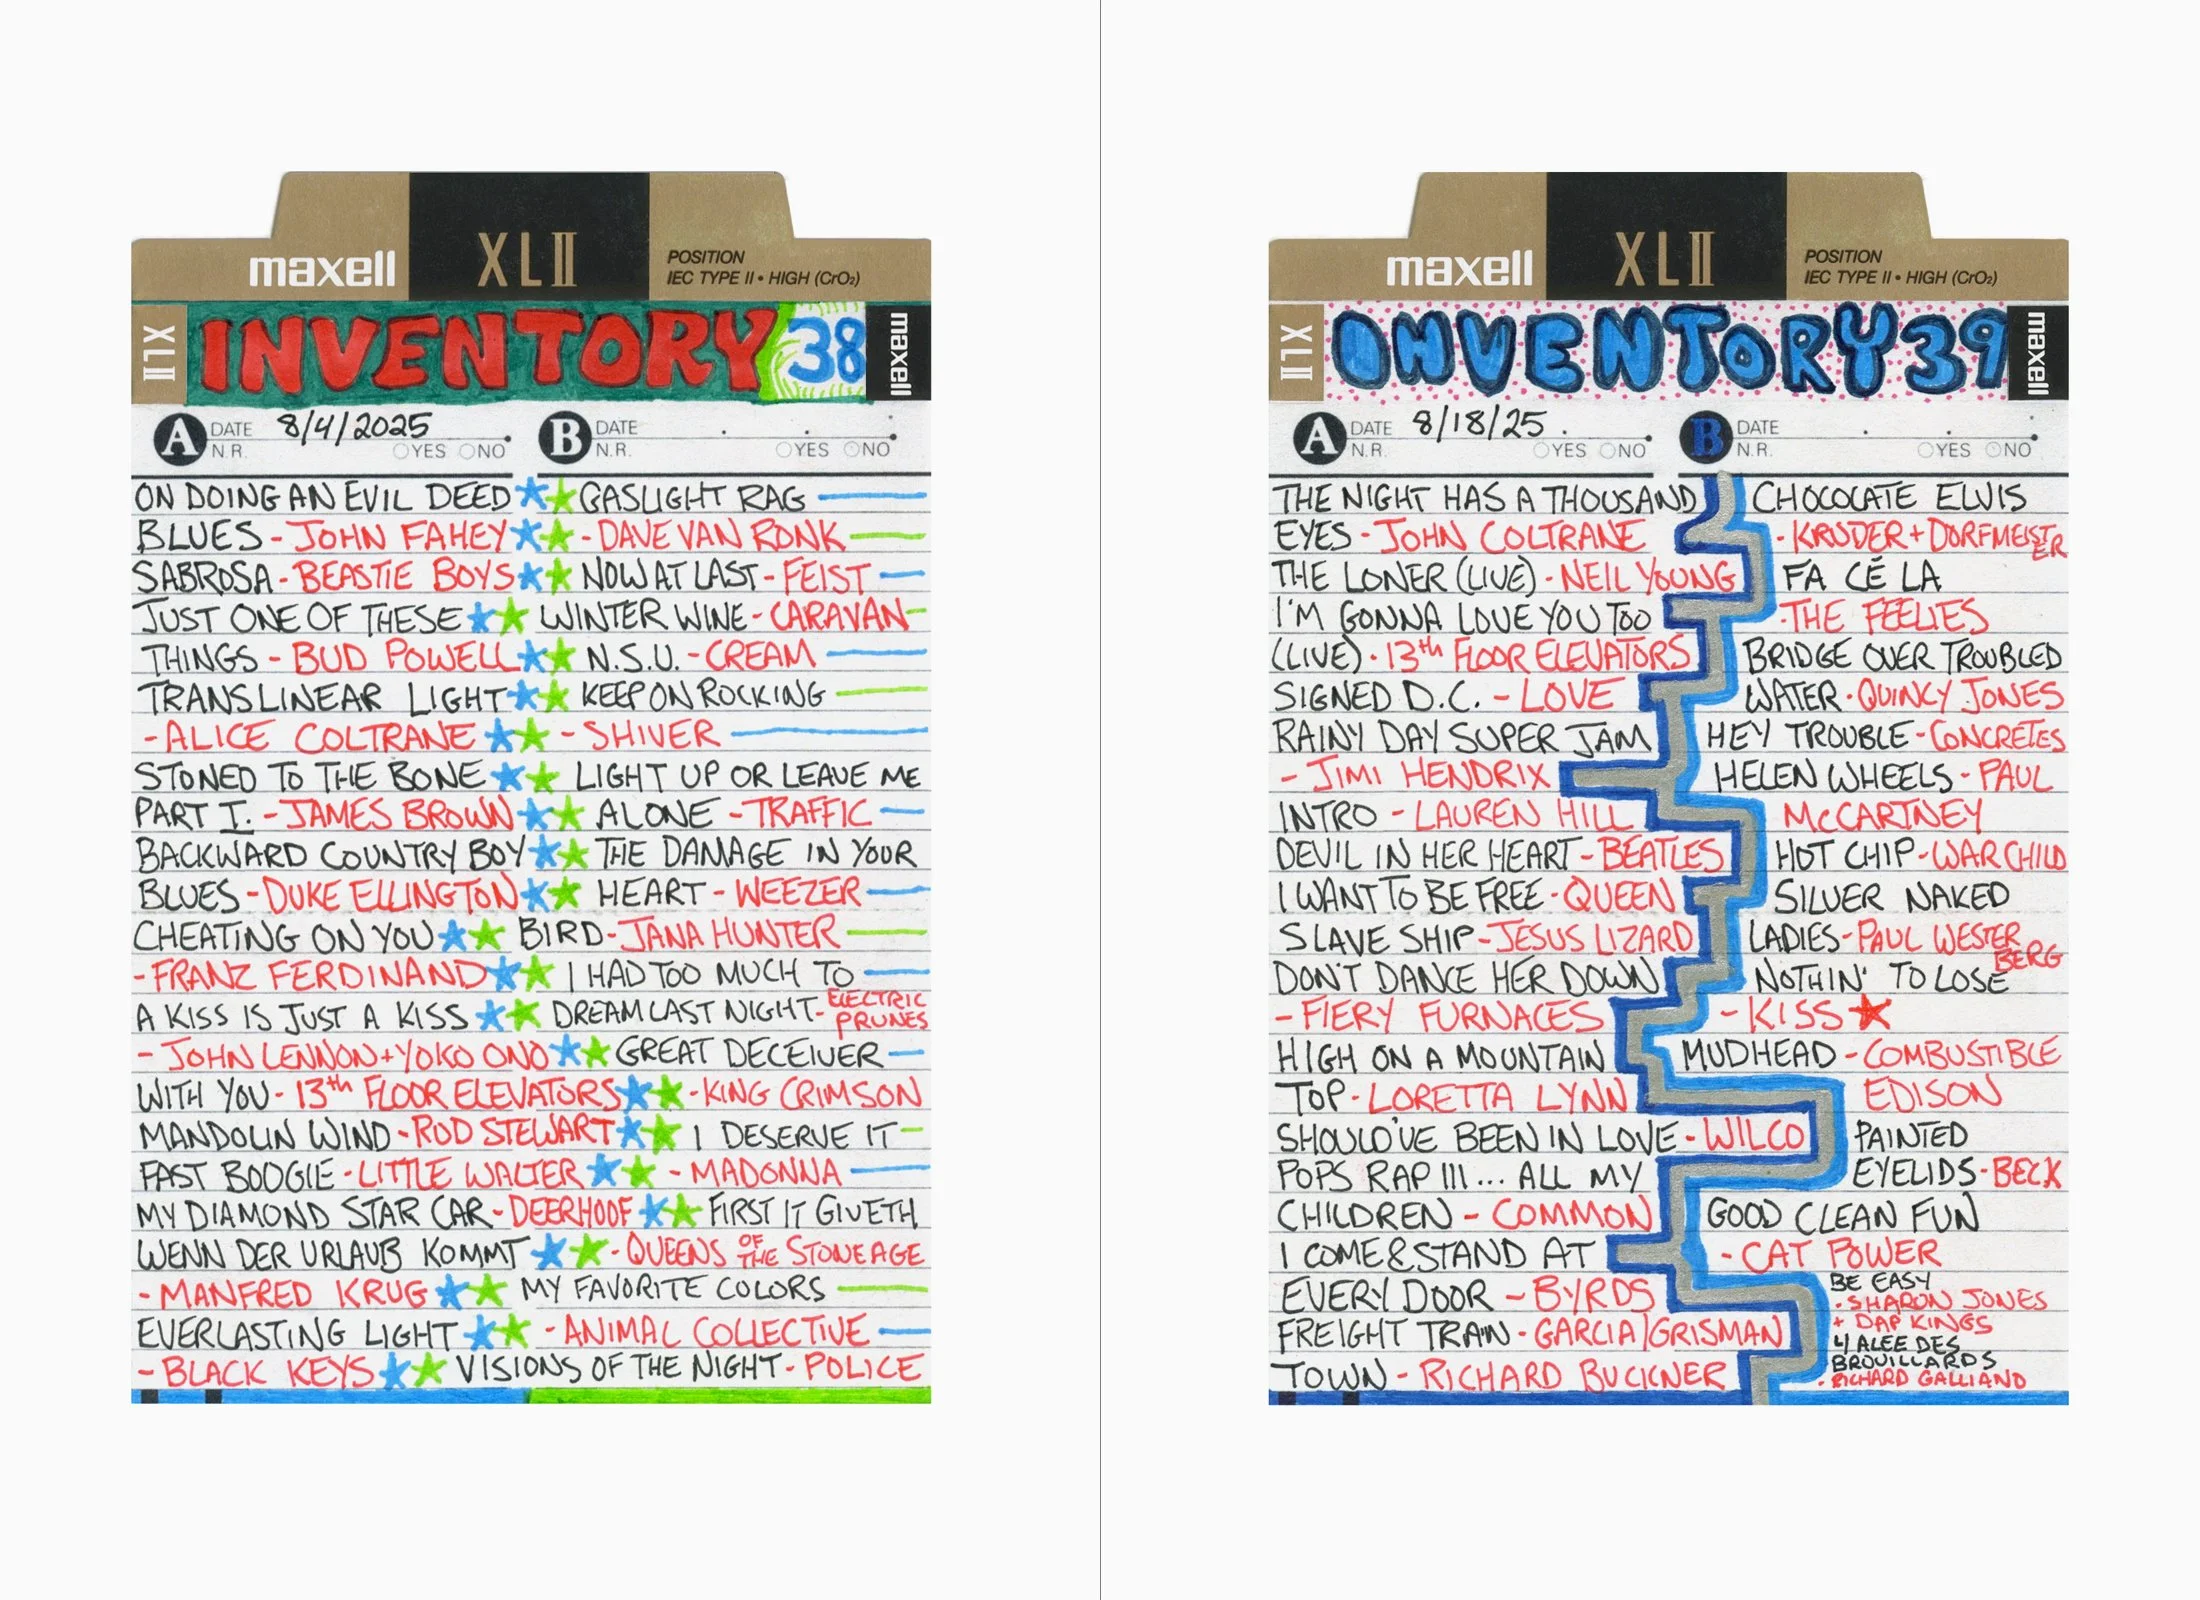 maxell XLII POSITION
IEC TYPE II • HIGH (CrO2)
XLII INVENTORY 38 maxell
A DATE 8/4/2025
N.R. YES NO
B DATE
N.R. YES NO
ON DOING AN EVIL DEED
BLUES - JOHN FAHEY
SABROSA - BEASTIE BOYS
JUST ONE OF THESE
THINGS - BUD POWELL
TRANSLINEAR LIGHT
- ALICE COLTRANE
STONED TO THE BONE
PART I. - JAMES BROWN
BACKWARD COUNTRY BOY
BLUES - DUKE ELLINGTON
CHEATING ON YOU
- FRANZ FERDINAND
A KISS IS JUST A KISS
- JOHN LENNON + YOKO ONO
WITH YOU - 13th FLOOR ELEVATORS
MANDOLIN WIND - ROD STEWART
FAST BOOGIE - LITTLE WALTER
MY DIAMOND STAR CAR - DEERHOOF
WENN DER URLAUB KOMMT
- MANFRED KRUG
EVERLASTING LIGHT
- BLACK KEYS
GASLIGHT RAG
- DAVE VAN RONK
NOW AT LAST - FEIST
WINTER WINE - CARAVAN
N.S.U. - CREAM
KEEP ON ROCKING
- SHIVER
LIGHT UP OR LEAVE ME
ALONE - TRAFFIC
THE DAMAGE IN YOUR
HEART - WEEZER
BIRD - JANA HUNTER
I HAD TOO MUCH TO
DREAM LAST NIGHT - ELECTRIC PRUNES
GREAT DECEIVER
- KING CRIMSON
I DESERVE IT
- MADONNA
FIRST IT GIVETH
- QUEENS OF THE STONE AGE
MY FAVORITE COLORS
- ANIMAL COLLECTIVE
VISIONS OF THE NIGHT - POLICE
maxell XLII POSITION
IEC TYPE II • HIGH (CrO2)
XLII INVENTORY 39 maxell
A DATE 8/18/25
N.R. YES NO
B DATE
N.R. YES NO
THE NIGHT HAS A THOUSAND
EYES - JOHN COLTRANE
THE LONER (LIVE) - NEIL YOUNG
I'M GONNA LOVE YOU TOO
(LIVE) - 13th FLOOR ELEVATORS
SIGNED D.C. - LOVE
RAINY DAY SUPER JAM
- JIMI HENDRIX
INTRO - LAUREN HILL
DEVIL IN HER HEART - BEATLES
I WANT TO BE FREE - QUEEN
SLAVE SHIP - JESUS LIZARD
DON'T DANCE HER DOWN
- FIERY FURNACES
HIGH ON A MOUNTAIN
TOP - LORETTA LYNN
SHOULD'VE BEEN IN LOVE - WILCO
POPS RAP III... ALL MY
CHILDREN - COMMON
I COME & STAND AT
EVERY DOOR - BYRDS
FREIGHT TRAIN - GARCIA/GRISMAN
TOWN - RICHARD BUCKNER
CHOCOLATE ELVIS
- KRUDER + DORFMEISTER
FA CÉ LA
- THE FEELIES
BRIDGE OVER TROUBLED
WATER - QUINCY JONES
HEY TROUBLE - CONCRETES
HELEN WHEELS - PAUL
McCARTNEY
HOT CHIP - WARCHILD
SILVER NAKED
LADIES - PAUL WESTERBERG
NOTHIN' TO LOSE
- KISS
MUDHEAD - COMBUSTIBLE
EDISON
PAINTED
EYELIDS - BECK
GOOD CLEAN FUN
- CAT POWER
BE EASY
- SHARON JONES
+ DAP KINGS
L'ALEE DES
BROUILLARDS
- RICHARD GALLIANO